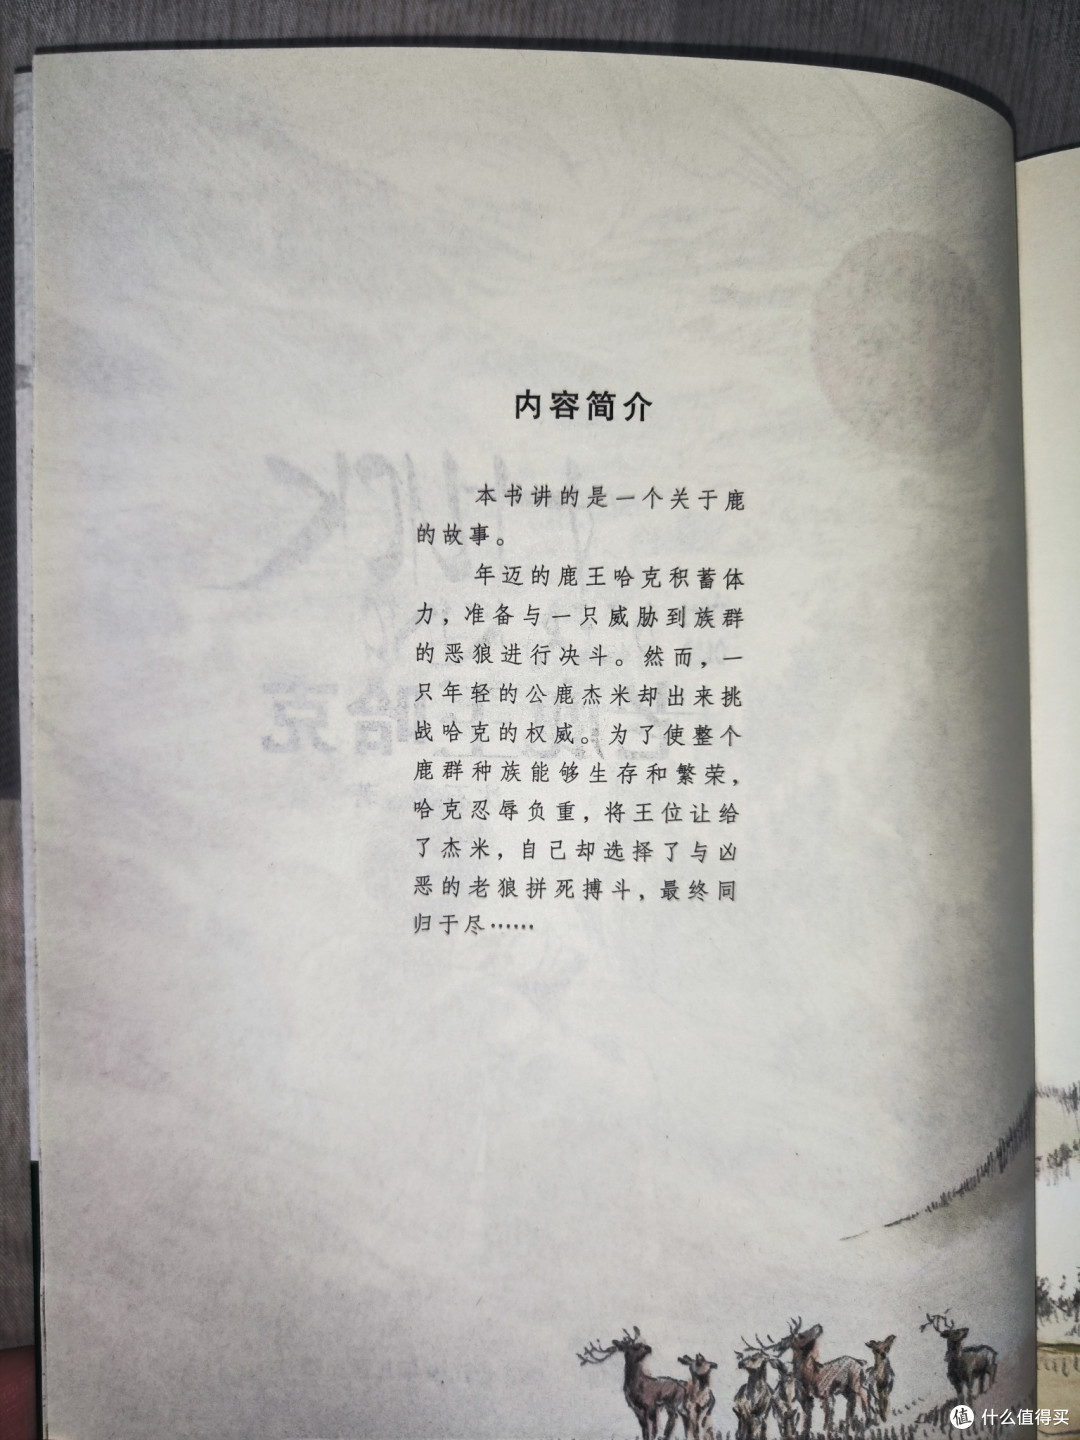 内容简介
本书讲的是一个关于鹿
的故事。
年迈的鹿王哈克积蓄体
力，准备与一只威胁到族群
的恶狼进行决斗。然而，一
只年轻的公鹿杰米却出来挑
战哈克的权威。为了使整个
鹿群种族能够生存和繁荣，
哈克忍辱负重，将王位让给
了杰米，自己却选择了与凶
恶的老狼拼死搏斗，最终同
归于尽……
值 什么值得买